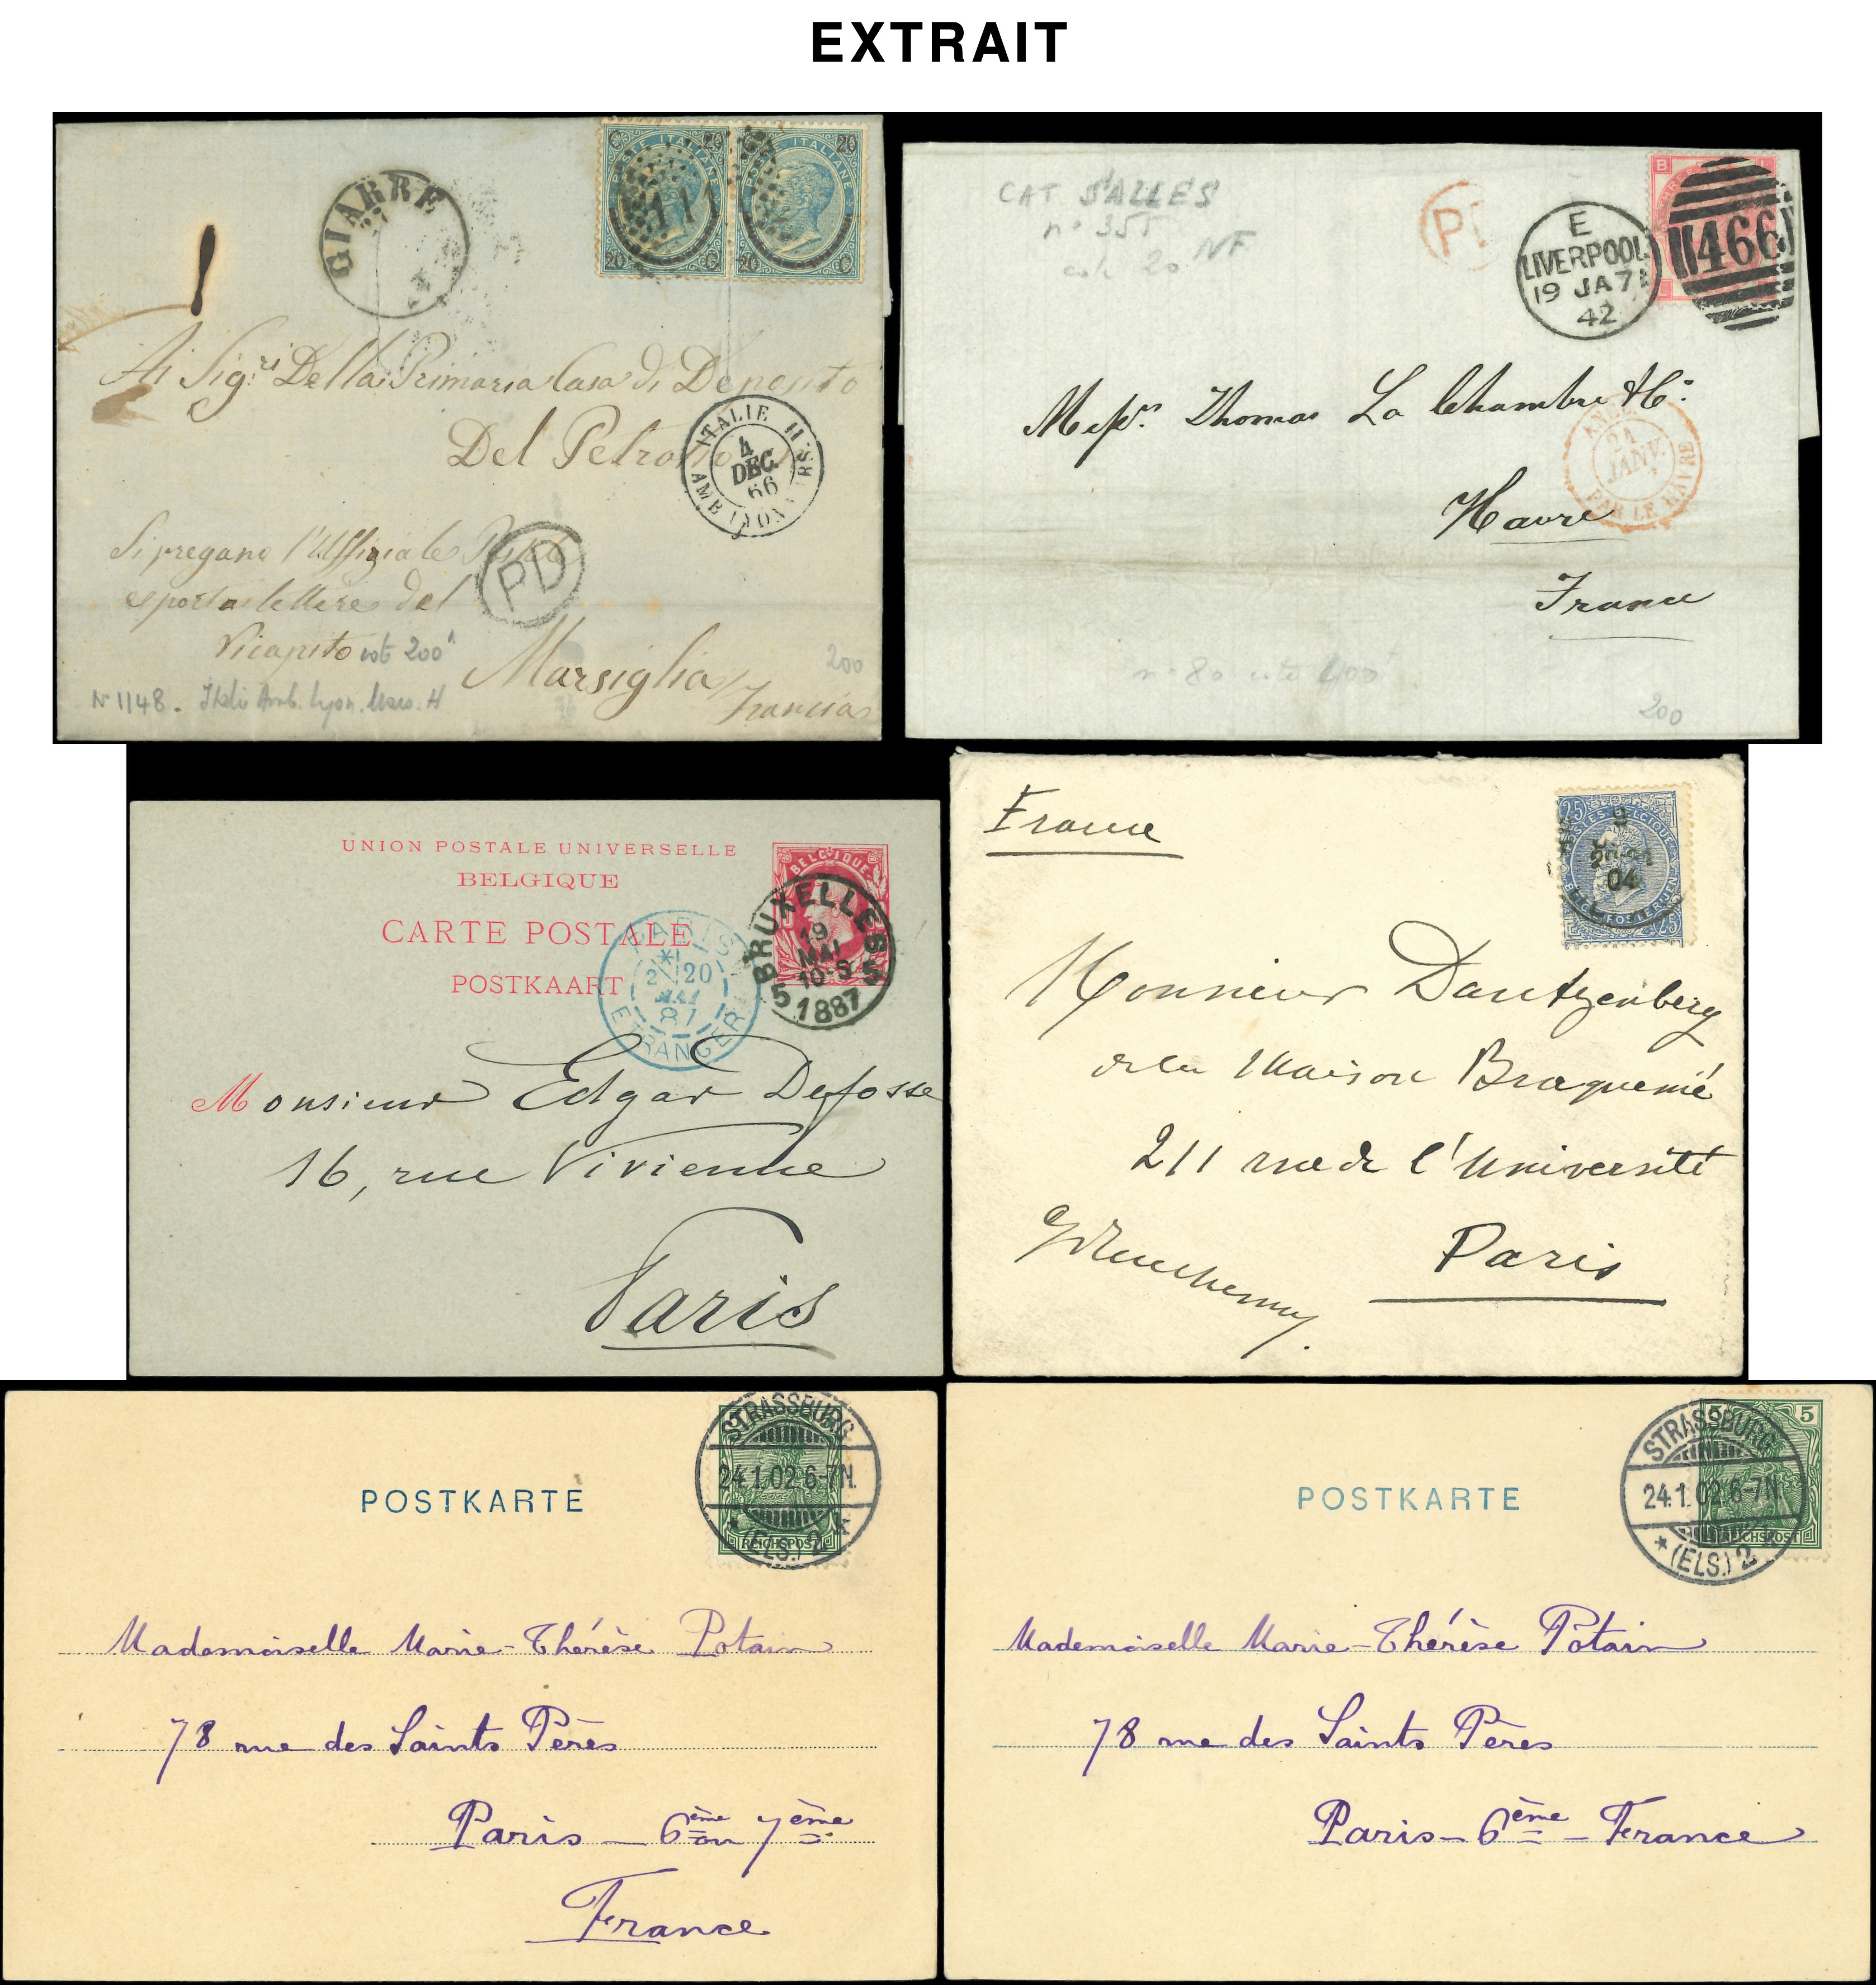 EXTRAIT
GIARRE
C 20 20
POSTE ITALIANE POSTE ITALIANE
20 C 20 C
Ai Sig.ri Della Primaria Casa di Deposito
Del Petrolio
ITALIE
4
DEC.
66
AMB
Si pregano l'Uffiziale
lettere del
PD
cot 200
Marsiglia
Francia
200
N 1148. Amb. Lyon. H
CAT SALLES
n° 355
20
E
LIVERPOOL
19 JA 71
42
466
B
Thomas La Chambre & Co.
24
JANV.
PAR LE HAVRE
Havre
France
n° 80
200
UNION POSTALE UNIVERSELLE
BELGIQUE
CARTE POSTALE
POSTKAART
BELGIQUE
BRUXELLES
19
MAI
10-S
5 1887 5
PARIS
20
MAI
ETRANGER
Monsieur Edgar Defosse
16, rue Vivienne
Paris
France
25
POSTES BELGIQUE
04
25
Monsieur Dautzenberg
de la Maison Braquenié
211 rue de l'Université
Paris
POSTKARTE
STRASSBURG
24.1.02.6-7N.
REICHSPOST
* (ELS.) 2 *
Mademoiselle Marie-Thérèse Potain
78 rue des Saints Pères
Paris – 6ème ou 7ème
France
POSTKARTE
5
STRASSBURG
24.1.02.6-7N.
REICHSPOST
* (ELS.) 2
Mademoiselle Marie-Thérèse Potain
78 rue des Saints Pères
Paris – 6ème – France